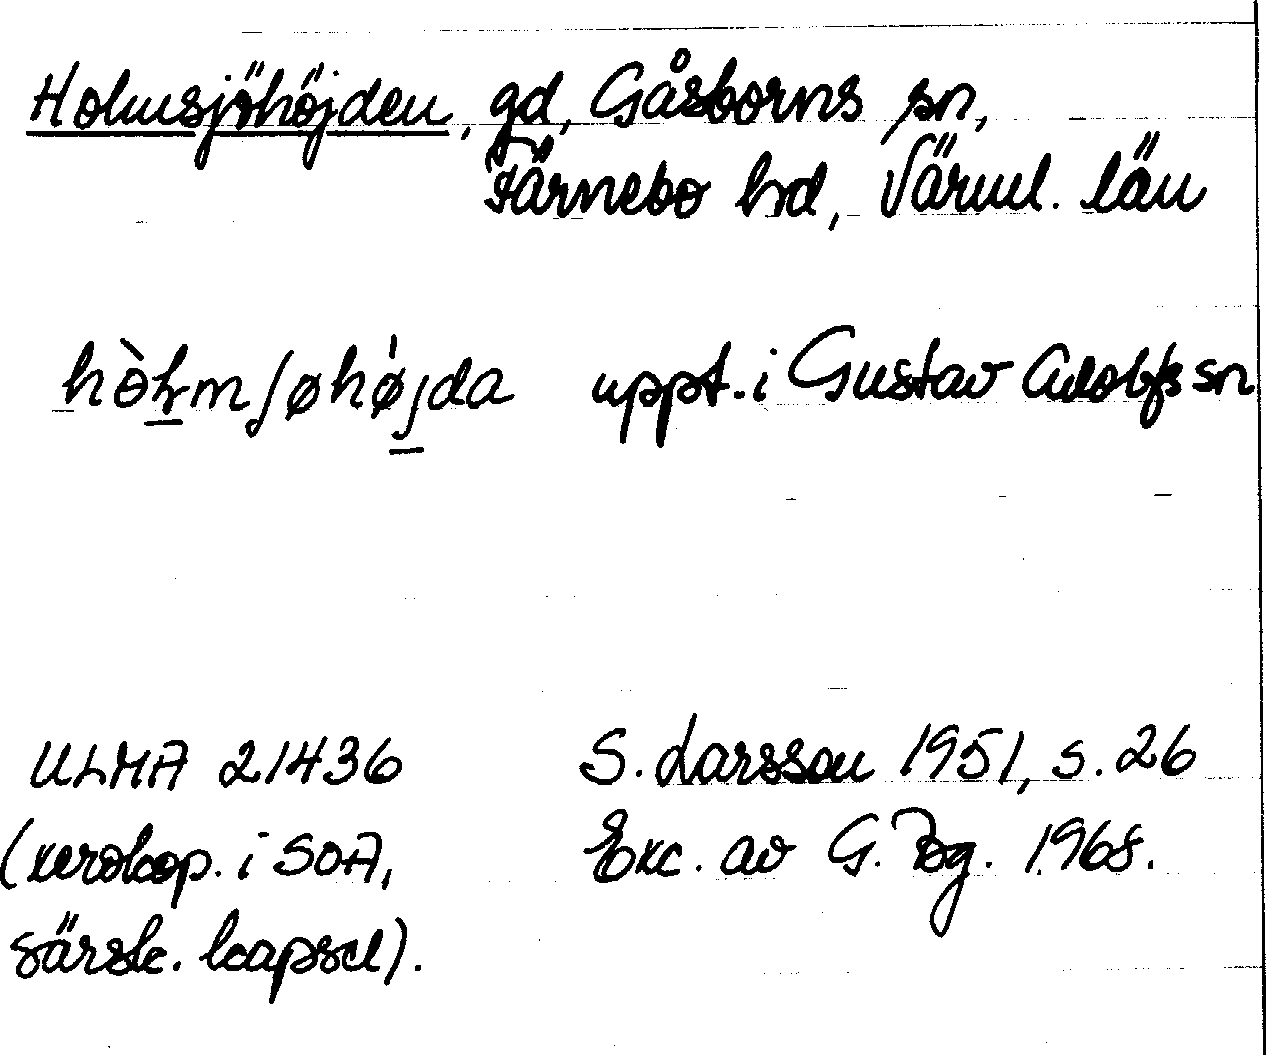 Holmsjöhöjden, gd, Gåsborns sn,
Färnebo hd, Värml. län
hòlmʃøhø̀jda uppt. i Gustav Adolfs sn
ULMA 21436 S. Larsson 1951, s. 26
(xerokop. i SOA, Exc. av G. Bg. 1968.
särsk. kapsel).